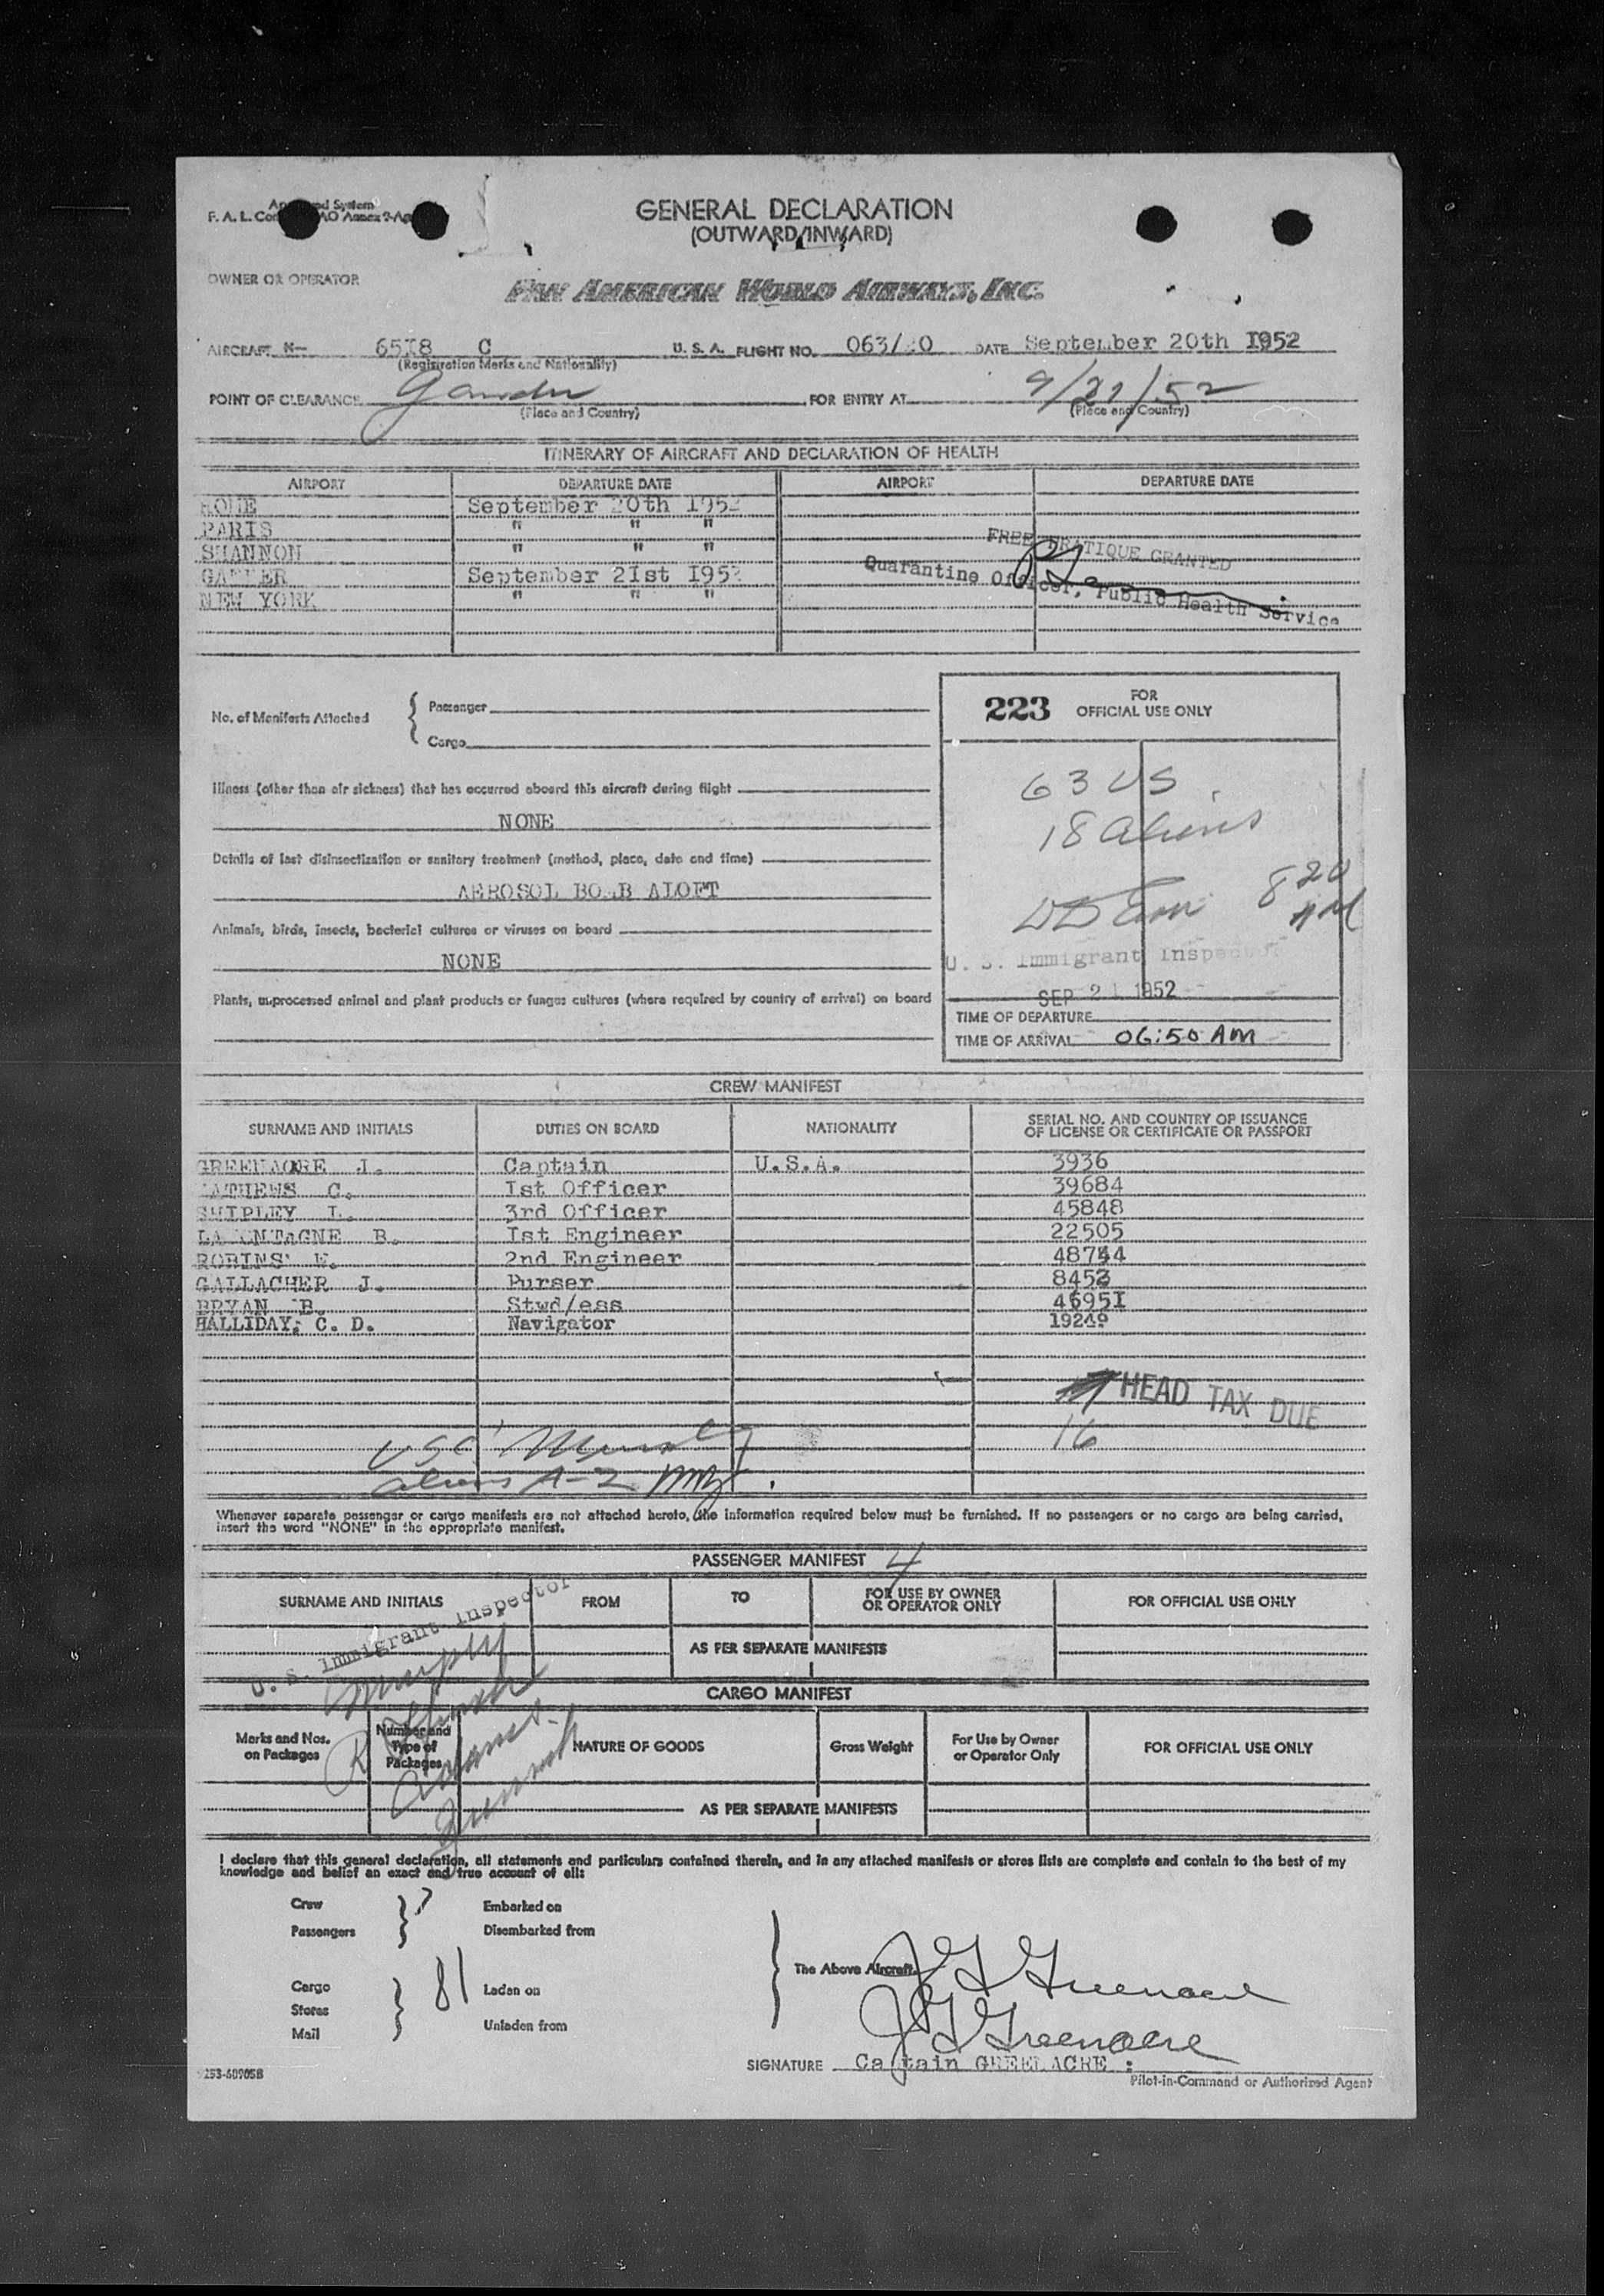 GENERAL DECLARATION
(OUTWARD/INWARD)
F. A. L.
OWNER OR OPERATOR
PAN AMERICAN WORLD AIRWAYS, INC.
AIRCRAFT N- 6518 C U. S. A. FLIGHT NO. 063/20 DATE September 20th 1952
(Registration Marks and Nationality)
POINT OF CLEARANCE Gander FOR ENTRY AT 9/21/52
(Place and Country) (Place and Country)
ITINERARY OF AIRCRAFT AND DECLARATION OF HEALTH
AIRPORT DEPARTURE DATE AIRPORT DEPARTURE DATE
ROME September 20th 1952
PARIS " " "
SHANNON " " "
GANDER September 21st 1952
NEW YORK " " "
FREE PRATIQUE GRANTED
Quarantine Officer, Public Health Service
No. of Manifests Attached { Passenger
Cargo
223 FOR OFFICIAL USE ONLY
63 US
18 aliens
8 20 AM
U. S. Immigrant Inspector
SEP 21 1952
TIME OF DEPARTURE
TIME OF ARRIVAL 06:50 AM
Illness (other than air sickness) that has occurred aboard this aircraft during flight
NONE
Details of last disinsectization or sanitary treatment (method, place, date and time)
AEROSOL BOMB ALOFT
Animals, birds, insects, bacterial cultures or viruses on board
NONE
Plants, unprocessed animal and plant products or fungus cultures (where required by country of arrival) on board
CREW MANIFEST
SURNAME AND INITIALS DUTIES ON BOARD NATIONALITY SERIAL NO. AND COUNTRY OF ISSUANCE
OF LICENSE OR CERTIFICATE OR PASSPORT
GREENACRE J. Captain U.S.A. 3936
MATHEWS C. Ist Officer 39684
SHIPLEY L. 3rd Officer 45848
LAMONTAGNE B. Ist Engineer 22505
ROBINS W. 2nd Engineer 48744
GALLAGHER J. Purser 8453
BRYAN B. Stwd/ess 4695I
HALLIDAY, C. D. Navigator 19249
HEAD TAX DUE
16
USC Murphy
aliens A-2
Whenever separate passenger or cargo manifests are not attached hereto, the information required below must be furnished. If no passengers or no cargo are being carried,
insert the word "NONE" in the appropriate manifest.
PASSENGER MANIFEST 4
SURNAME AND INITIALS FROM TO FOR USE BY OWNER
OR OPERATOR ONLY FOR OFFICIAL USE ONLY
AS PER SEPARATE MANIFESTS
U. S. Immigrant Inspector
Murphy
CARGO MANIFEST
Marks and Nos.
on Packages Number and
Type of
Packages NATURE OF GOODS Gross Weight For Use by Owner
or Operator Only FOR OFFICIAL USE ONLY
Adams
AS PER SEPARATE MANIFESTS
I declare that this general declaration, all statements and particulars contained therein, and in any attached manifests or stores lists are complete and contain to the best of my
knowledge and belief an exact and true account of all:
Crew Embarked on
Passengers Disembarked from
The Above Aircraft. J G Greenacre
Cargo 81 Laden on
Stores
Mail Unladen from
J G Greenacre
SIGNATURE Captain GREENACRE :
Pilot-in-Command or Authorized Agent
253-609058